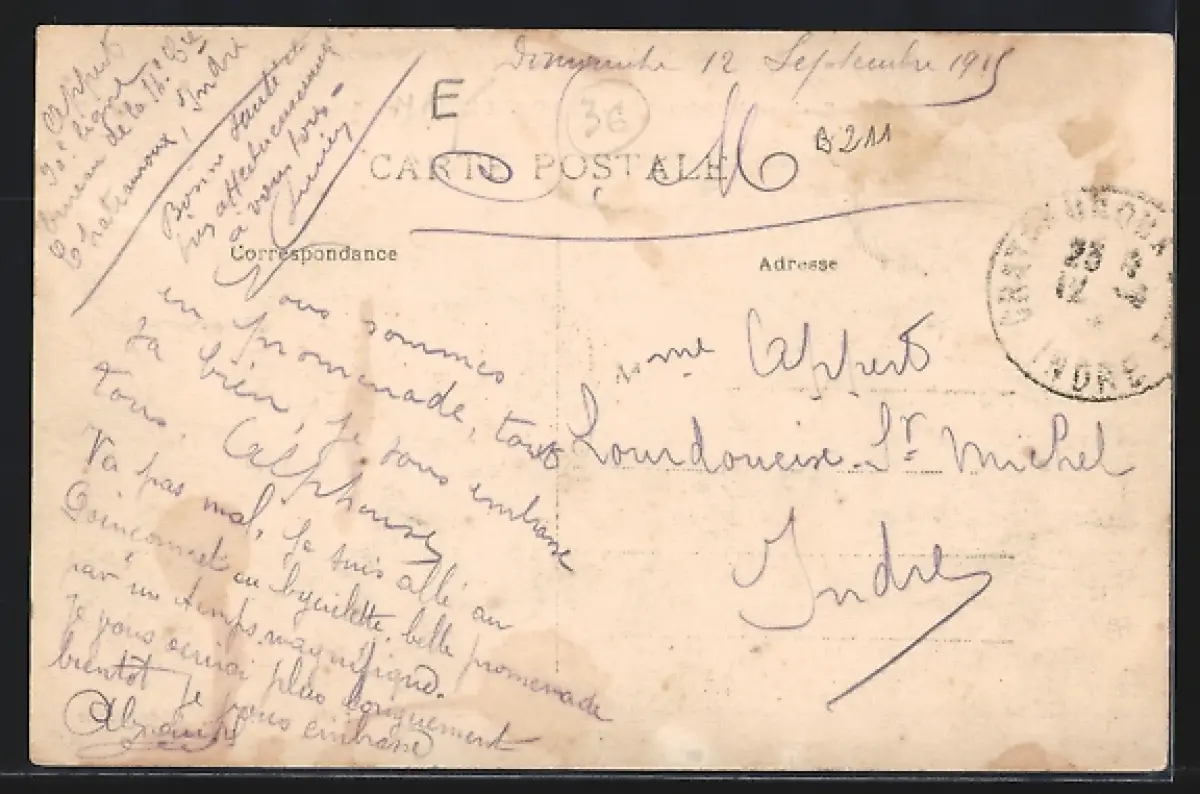 Dimanche 12 Septembre 1915
E
36
B211
M
CARTE POSTALE
Correspondance
Adresse
Appert
90e ligne
de la 16e Cie
Châteauroux, Indre
Bonne santé et
affectueusement
à vous tous
Nous sommes
en promenade, tout
va bien, je vous embrasse
tous. Alphonse
Va pas mal, je suis allé au
Poinçonnet en bycielette, belle promenade
par un temps magnifique.
Je vous écrirai plus longuement
bientôt je vous embrasse
Alexandre
Mme Appert
Lourdoueix-St Michel
Indre
INDRE